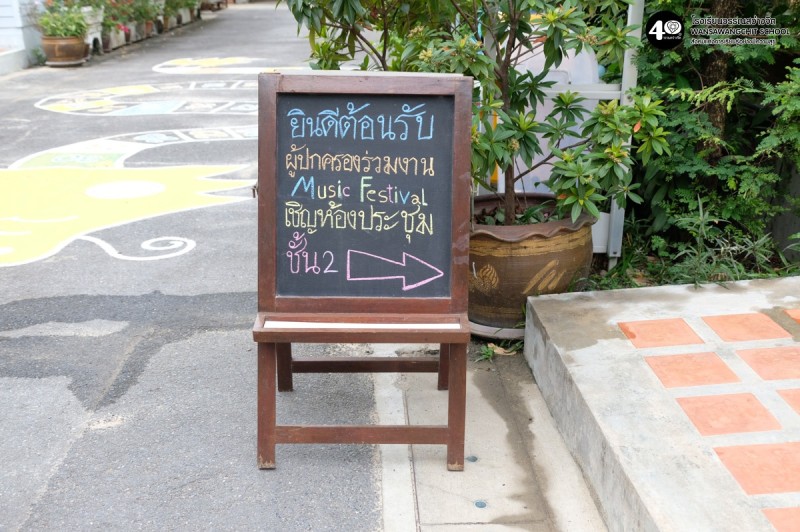 โรงเรียนวรรณสว่างจิต
WANSAWANGCHIT SCHOOL
ยินดีต้อนรับ
ผู้ปกครองร่วมงาน
Music Festival
เชิญห้องประชุม
ชั้น 2